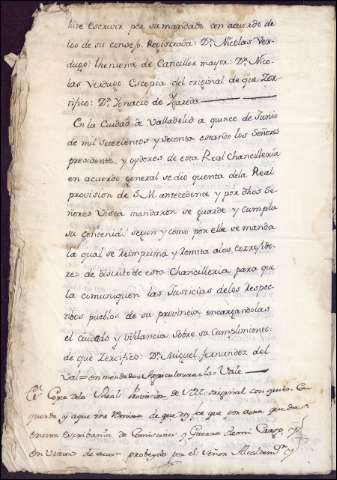 hice escrivir por su mandado con acuerdo de
los de su consejo. Rexistrada: Dn. Nicolas Ver-
dugo: theniente de Canciller mayor: Dn. Nico-
las Verdugo. Es copia del original de que Zer-
tifico: Dn. Ignacio de
En la Ciudad de Valladolid a quince de Junio
de mil setecientos y setenta estando los Señores
presidente, y oydores de esta Real Chancilleria
en acuerdo general se dio quenta dela Real
provision de S.M. antecedente y por dhos Se-
ñores Vista mandaron se guarde y cumpla
su contenido segun y como por ella se manda
la qual se reimprima y remita alos correxido-
res de distrito de esta Chancilleria para que
la comuniquen las Justicias delos respec-
tivos pueblos de su provincia encargandolas
el cuidado y vilancia sobre su cumplimiento:
de que Zertifico: Dn. Miguel fernandez del
Val = enmendado = Vale
Es Copia dela Real Provision de original con quien Con-
cuerda, y a que me Remito de que doy fee que por aora queda
en mi Escribania de y
en virtud de probeydo por el Señor